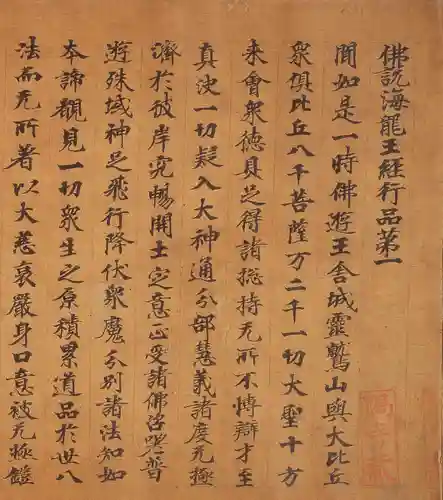 佛説海龍王經行品第一
聞如是一時佛遊王舍城靈鷲山與大比丘
衆俱比丘八千菩薩万二千一切大聖十方
来會衆德具足得諸揔持无所不博辯才至
真决一切疑入大神通分部慧義諸度无極
濟於彼岸究暢開士定意正受諸佛咨嗟普
遊殊域神足飛行降伏衆魔分別諸法知如
本諦觀見一切衆生之原積累道品於世八
法而无所著以大慈哀嚴身口意被无極鎧